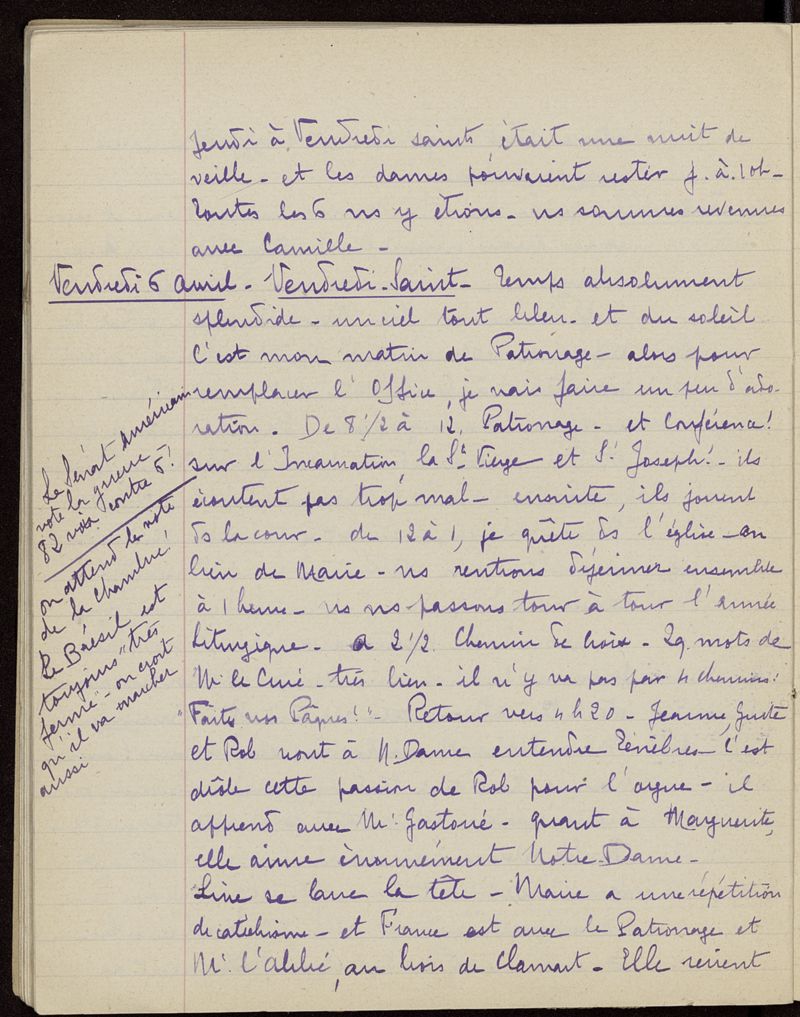 Jeudi à Vendredi saints était une nuit de
veille - et les dames pouvaient rester j. à. 10h -
Toutes les 6 ns y étions - ns sommes revenues
avec Camille -
Vendredi 6 avril - Vendredi-Saint - Temps absolument
splendide - un ciel tout bleu - et du soleil
C'est mon matin de Patronage - alors pour
remplacer l'Office, je vais faire un peu d'ado-
ration. De 8 1/2 à 12, Patronage - et Conférence!
sur l'Incarnation, la Ste Vierge et St Joseph! - ils
écoutent pas trop mal - ensuite, ils jouent
ds la cour - de 12 à 1, je quête ds l'église - au
lieu de Marie - ns rentrons déjeuner ensemble
à 1 heure - ns ns passons tour à tour l'année
Liturgique - a 2 1/2 Chemin de Croix - Qq. mots de
Mr le Curé - très bien - il n'y va pas par 4 chemins!
"Faites vos Pâques!" - Retour vers 4h20 - Jeanne, Guite
et Rob vont à N. Dame entendre Ténèbres - C'est
drôle cette passion de Rob pour l'orgue - il
apprend avec Mr Gastoué - quant à Marguerite,
elle aime énormément Notre-Dame -
Line se lave la tête - Marie a une répétition
de catéchisme - et France est avec le Patronage et
Mr l'abbé, au bois de Clamart - Elle revient
Le Sénat américain
vote la guerre -
82 voix contre 6!
on attend le vote
de la Chambre!
Le Brésil est
toujours "très
ferme" - on croit
qu'il va marcher
aussi